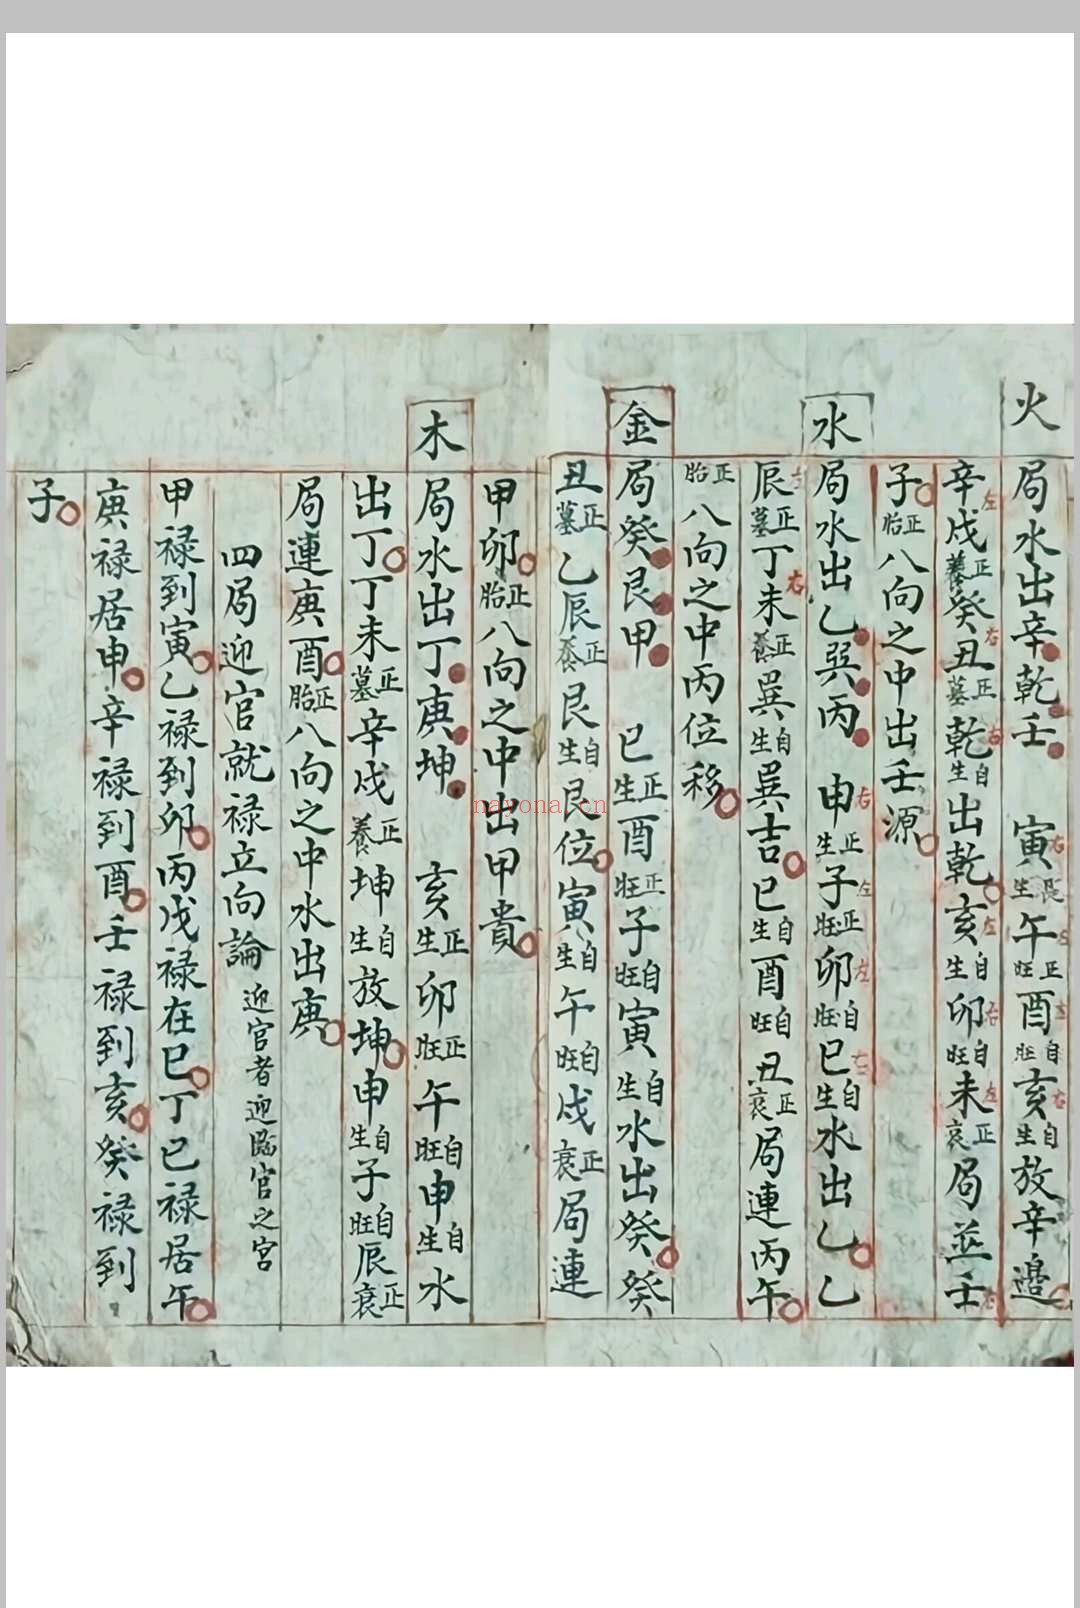 火
局水出辛乾壬 寅長生午正旺酉自旺亥自生放辛邉
辛戌正養癸丑正墓乾自生出乾亥自生卯自旺未正衰局並壬
子正胎八向之中出壬源
水
局水出乙巽丙 申正生子正旺卯自旺巳自生水出乙乙
辰正墓丁未正養巽自生巽吉巳自生酉自旺丑正衰局連丙午
正胎八向之中丙位移
金
局癸艮甲 巳正生酉正旺子自旺寅自生水出癸癸
丑正墓乙辰正養艮自生艮位寅自生午自旺戌正衰局連
甲卯正胎八向之中出甲貴
木
局水出丁庚坤 亥正生卯正旺午自旺申自生水
出丁丁未正墓辛戌正養坤自生放坤申自生子自旺辰正衰
局連庚酉正胎八向之中水出庚
四局迎官就禄立向論 迎官者迎臨官之宮
甲禄到寅乙禄到卯丙戊禄在巳丁己禄居午
庚禄居申辛禄到酉壬禄到亥癸禄到
子
nayona.cn